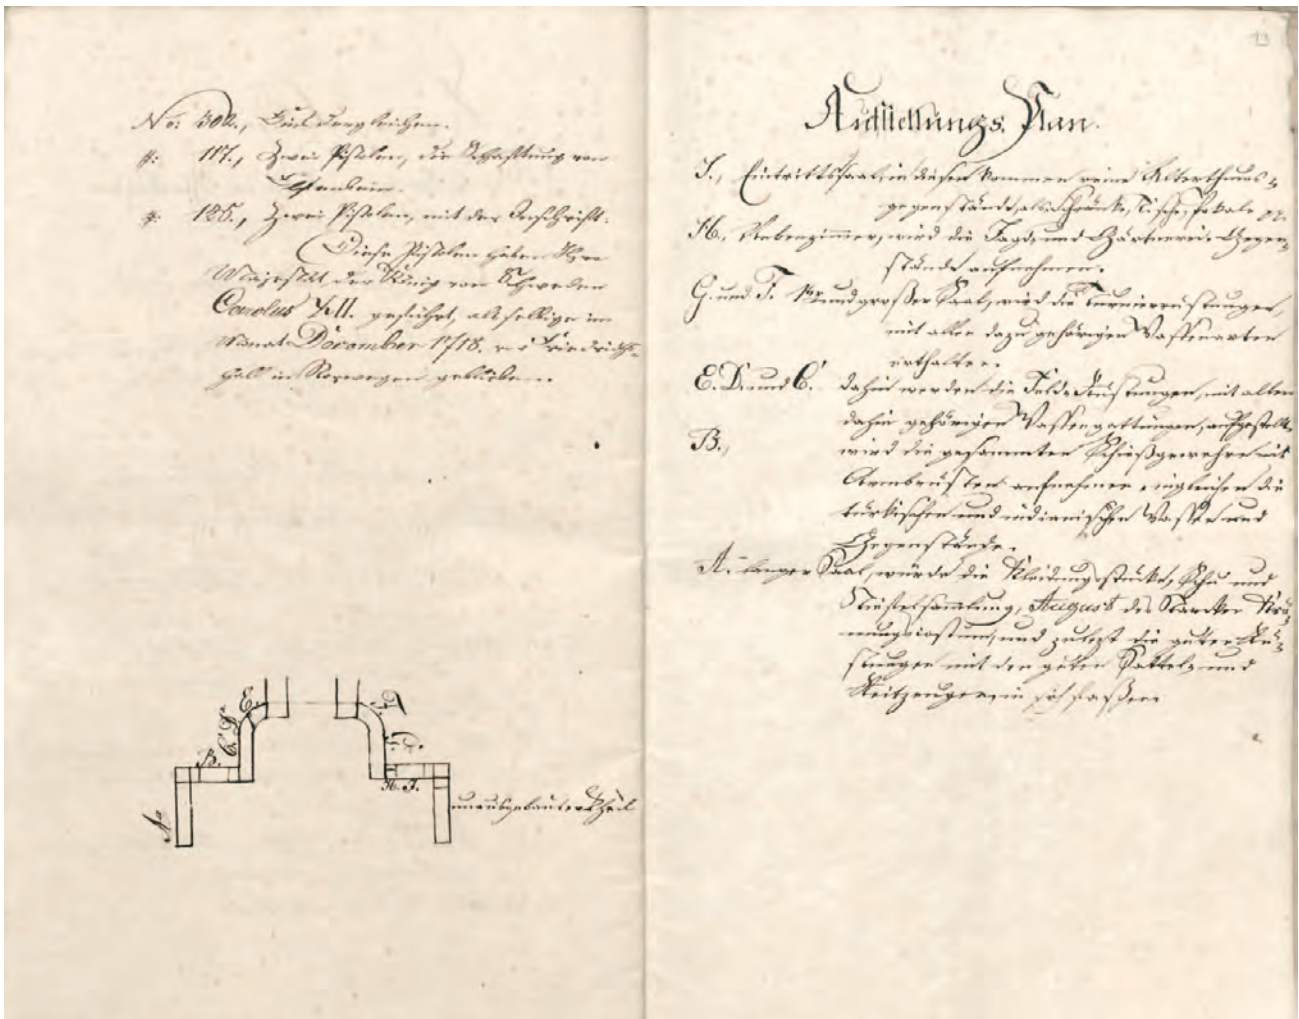 No: 502., Eins dergleichen.
#: 117., Zwei Pistolen, die Schäftung von
Elfenbein.
#: 126., Zwei Pistolen, mit der Inschrift:
Diese Pistolen haben Ihre
Majestät der König von Schweden
Carolus XII. geführt, als selbige im
Monat December 1718. vor Friedrichs-
hall in Norwegen geblieben.
E.
D.
C.
B.
A.
F.
G.
H. I.
unausgebauter Theil
13
Aufstellungs. Plan.
I., Eintrittssaal, in diesen kommen reine Alterthums-
gegenstände, als: Schränke, Tische, Pokale
H., Nebenzimmer, wird die Jagd, und Gärtnerei-Gegen-
stände aufnehmen.
G. und F. und großer Saal, wird die Turnierrüstungen,
mit allen dazu gehörigen Waffenarten
enthalten.
E. D. und C. dahin werden die Feld-Rüstungen, mit allen
dahin gehörigen Waffengattungen, aufgestellt.
B., wird die gesammten Schießgewehre mit
Armbrüsten aufnehmen, ingleichen die
türkischen und indianischen Waffen und
Gegenstände.
A. langer Saal, würde die Kleidungsstücke, Schu und
Stiefelsammlung, August des Starken Krö-
nungscostum, und zuletzt die guten Rü-
stungen mit den guten Sattel- und
Reitzeugen, in sich faßen.